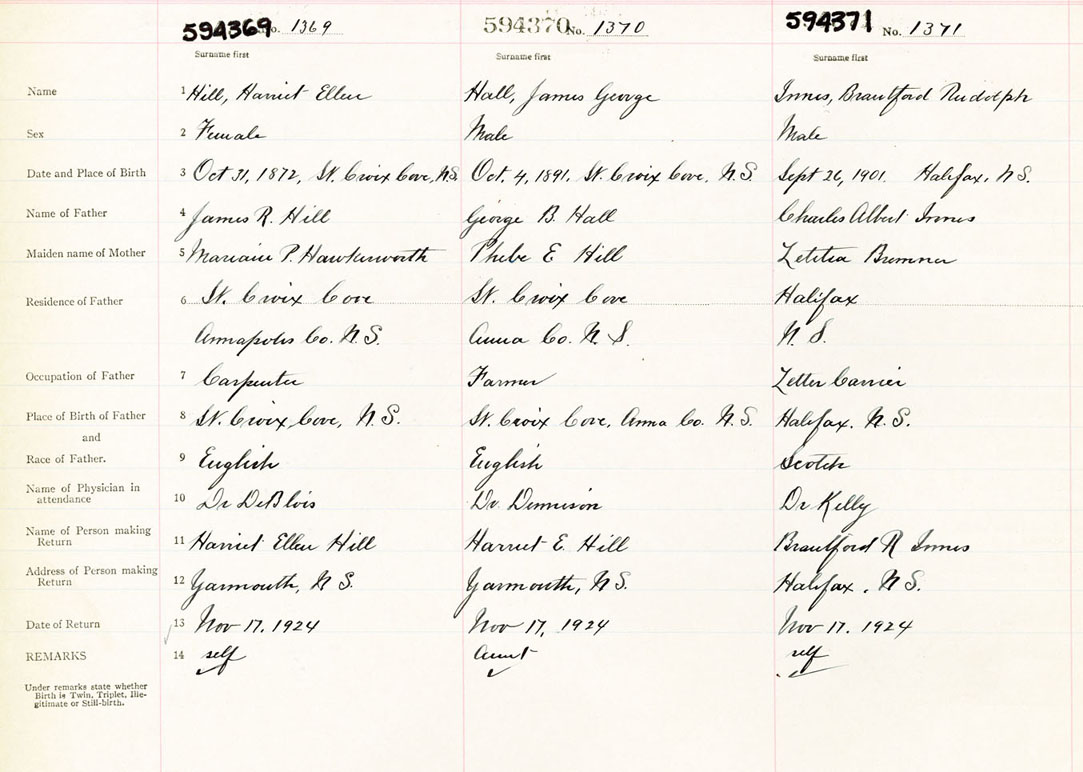 594369 No. 1369 594370 No. 1370 594371 No. 1371
Surname first Surname first Surname first
Name 1 Hill, Harriet Ellen Hall, James George Innes, Brantford Rudolph
Sex 2 Female Male Male
Date and Place of Birth 3 Oct 31, 1872, St. Croix Cove, N.S. Oct. 4, 1891. St. Croix Cove. N.S Sept 26, 1901. Halifax, N.S.
Name of Father 4 James R. Hill George B. Hall Charles Albert Innes
Maiden name of Mother 5 P. Hawkesworth Phebe E Hill Letitia Bremner
Residence of Father 6 St. Croix Cove St. Croix Cove Halifax
Annapolis Co. N.S. Anna Co. N.S. N.S.
Occupation of Father 7 Carpenter Farmer Letter Carrier
Place of Birth of Father 8 St. Croix Cove, N.S. St. Croix Cove, Anna Co. N.S. Halifax. N.S.
and
Race of Father. 9 English English Scotch
Name of Physician in
attendance 10 Dr DeBlois Dr. Dennison Dr Kelly
Name of Person making
Return 11 Harriet Ellen Hill Harriet E. Hill Brantford R Innes
Address of Person making
Return 12 Yarmouth, N.S. Yarmouth, N.S. Halifax, N.S.
Date of Return 13 Nov 17. 1924 Nov 17, 1924 Nov 17. 1924
REMARKS 14 self Aunt self
Under remarks state whether
Birth is Twin, Triplet, Ille-
gitimate or Still-birth.